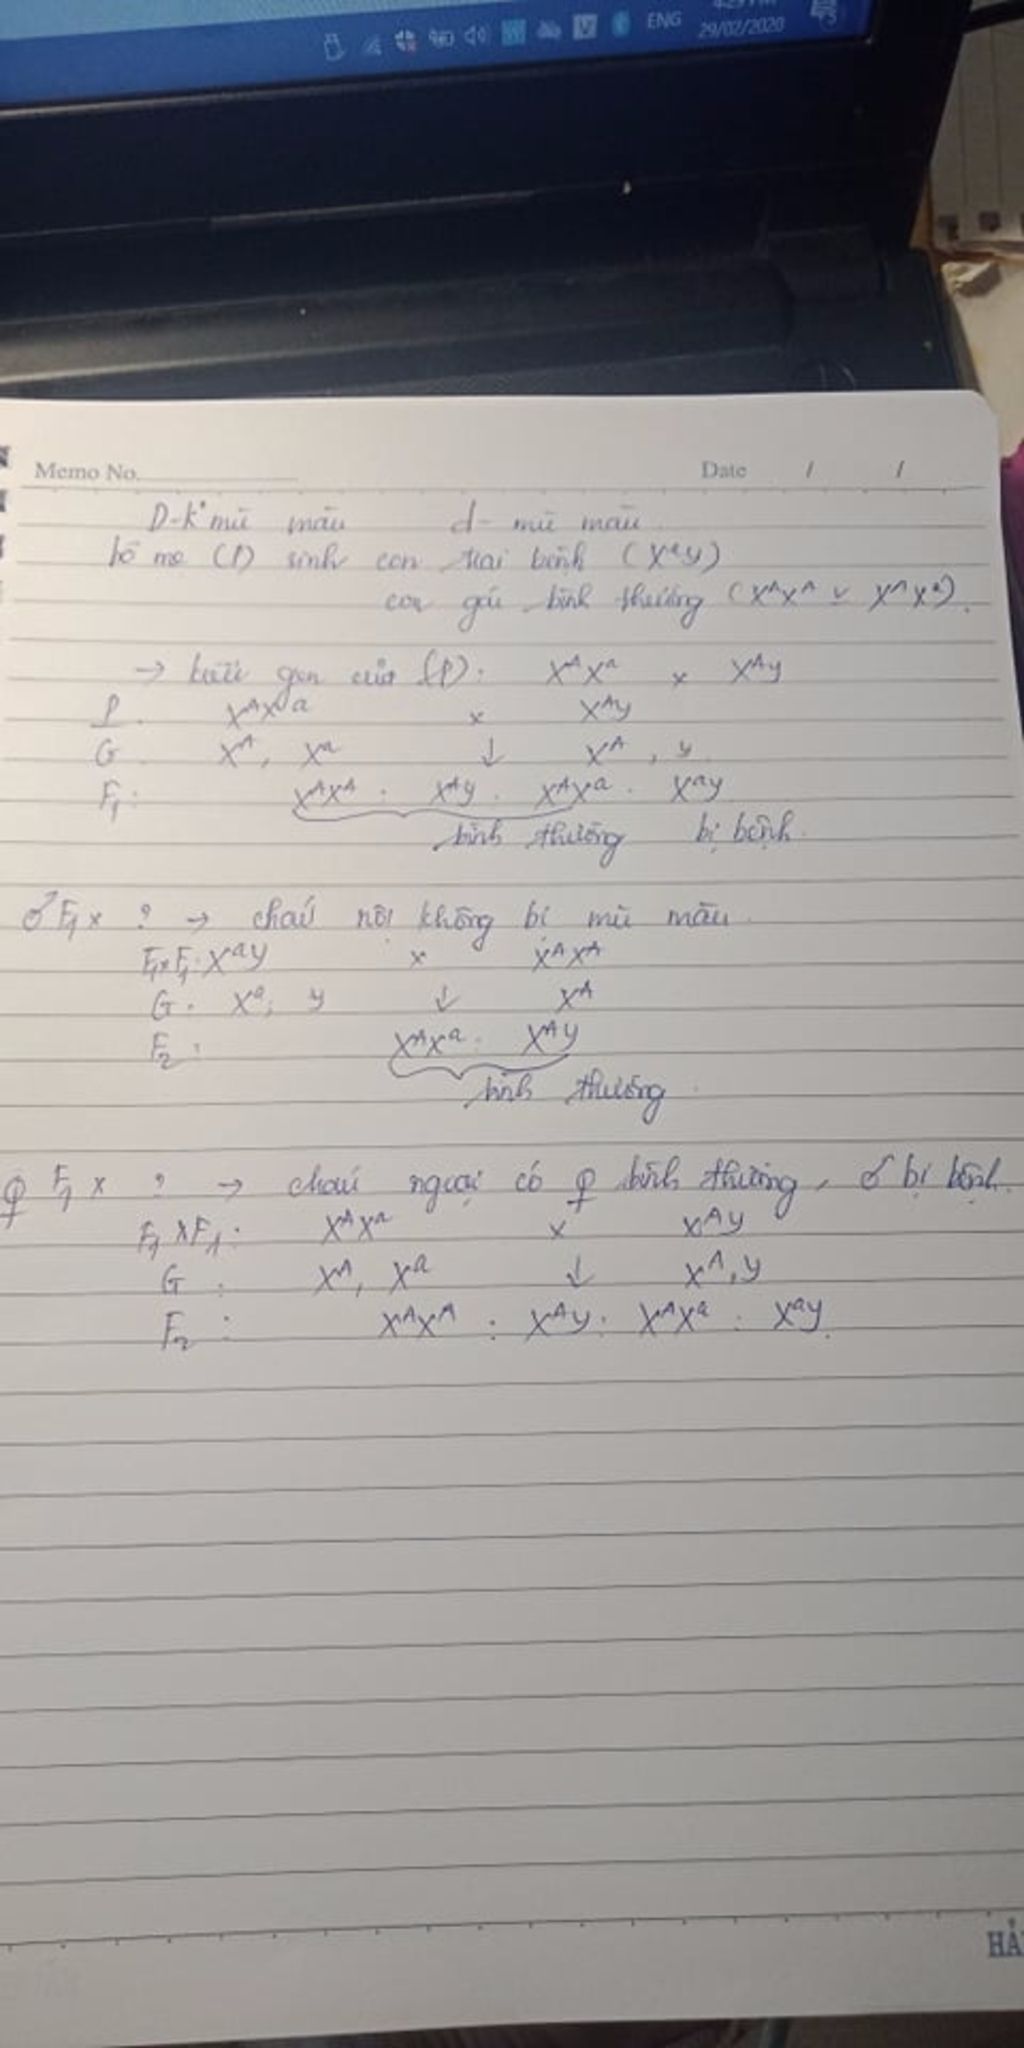 ENG
29/02/2020
Memo No.
Date / /
D-k° mù màu d- mù màu
bố mẹ (P) sinh con trai bệnh (XᵃY)
con gái bình thường (XᴬXᴬ v XᴬXᵃ).
→ kiểu gen của (P): XᴬXᵃ x XᴬY
P. XᴬXᵃ x XᴬY
G. Xᴬ, Xᵃ ↓ Xᴬ, Y
F₁: XᴬXᴬ : XᴬY : XᴬXᵃ : XᵃY
bình thường bị bệnh.
♂F₁ x ? → cháu nội không bị mù màu
F₁xF₁: XᵃY x XᴬXᴬ
G. Xᵃ, Y ↓ Xᴬ
F₂: XᴬXᵃ : XᴬY
bình thường.
♀ F₁ x ? → cháu ngoại có ♀ bình thường, ♂ bị bệnh.
F₁ x F₁: XᴬXᵃ x XᴬY
G: Xᴬ, Xᵃ ↓ Xᴬ, Y
F₂: XᴬXᴬ : XᴬY : XᴬXᵃ : XᵃY.